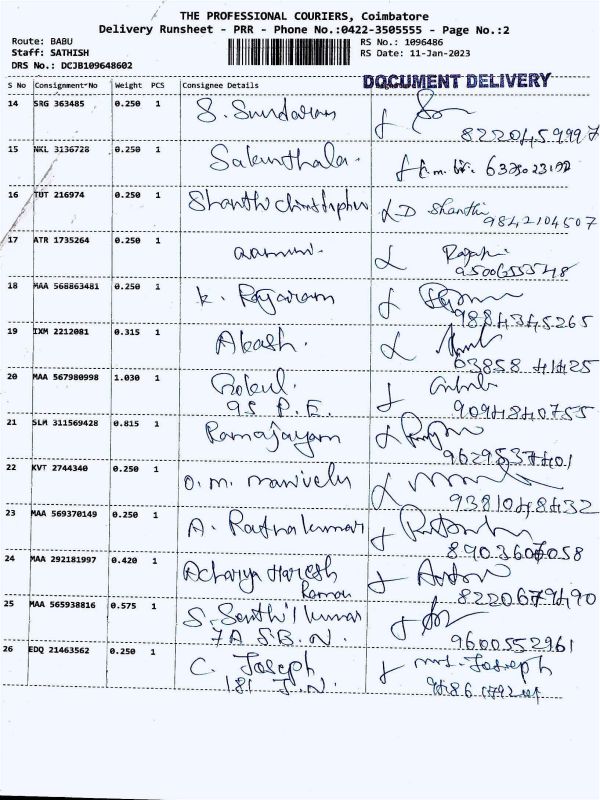 THE PROFESSIONAL COURIERS, Coimbatore
Delivery Runsheet - PRR - Phone No.:0422-3505555 - Page No.:2
Route: BABU RS No.: 1096486
Staff: SATHISH RS Date: 11-Jan-2023
DRS No.: DCJB109648602
DOCUMENT DELIVERY
S No Consignment No Weight PCS Consignee Details
14 SRG 363485 0.250 1 S. Sundaram
8220459997
15 NKL 3136728 0.250 1 Sakunthala.
16 TUT 216974 0.250 1 Shanthi Christopher D Shanthi
9842104507
17 ATR 1735264 0.250 1
18 MAA 568863481 0.250 1 K. Rajaram
9884345265
19 IXM 2212081 0.315 1 Akash.
63858 41425
20 MAA 567980998 1.030 1 Gokul.
95 P.E. 9094840755
21 SLM 311569428 0.815 1 Ramajayam
9629537401
22 KVT 2744340 0.250 1 O. M.
9381048432
23 MAA 569370149 0.250 1 A. Rathnakumar
24 MAA 292181997 0.420 1 Acharya Haresh
Raman 8220679490
25 MAA 565938816 0.575 1 S. Senthil kumar
7A S.B.N. 9600552961
26 EDQ 21463562 0.250 1 C. Joseph Mrs. Joseph
181 J.N.